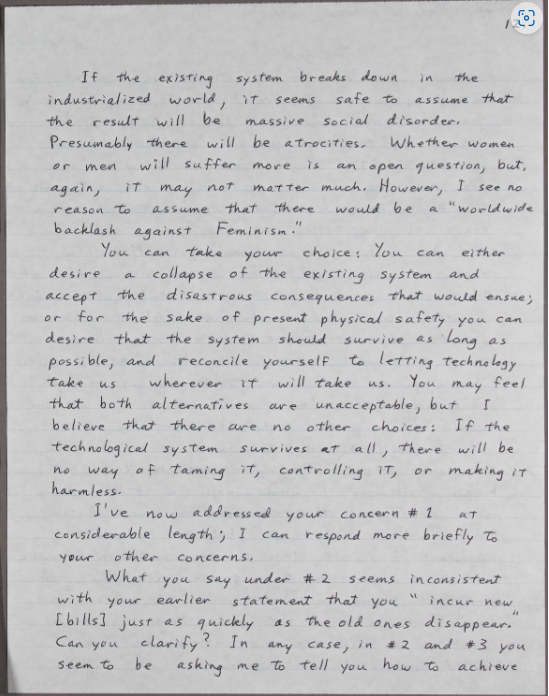 12
If the existing system breaks down in the
industrialized world, it seems safe to assume that
the result will be massive social disorder.
Presumably there will be atrocities. Whether women
or men will suffer more is an open question, but,
again, it may not matter much. However, I see no
reason to assume that there would be a "worldwide
backlash against Feminism."
You can take your choice: You can either
desire a collapse of the existing system and
accept the disastrous consequences that would ensue;
or for the sake of present physical safety you can
desire that the system should survive as long as
possible, and reconcile yourself to letting technology
take us wherever it will take us. You may feel
that both alternatives are unacceptable, but I
believe that there are no other choices: If the
technological system survives at all, there will be
no way of taming it, controlling it, or making it
harmless.
I've now addressed your concern #1 at
considerable length; I can respond more briefly to
your other concerns.
What you say under #2 seems inconsistent
with your earlier statement that you "incur new
[bills] just as quickly as the old ones disappear."
Can you clarify? In any case, in #2 and #3 you
seem to be asking me to tell you how to achieve